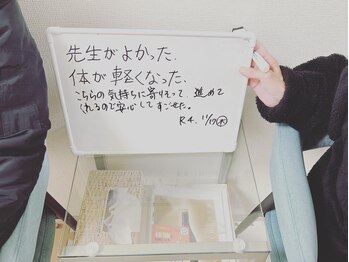 先生がよかった.
体が軽くなった.
こちらの気持ちに寄りそって、進めて
くれるので安心してすごせた。
R4. 11/17㊍